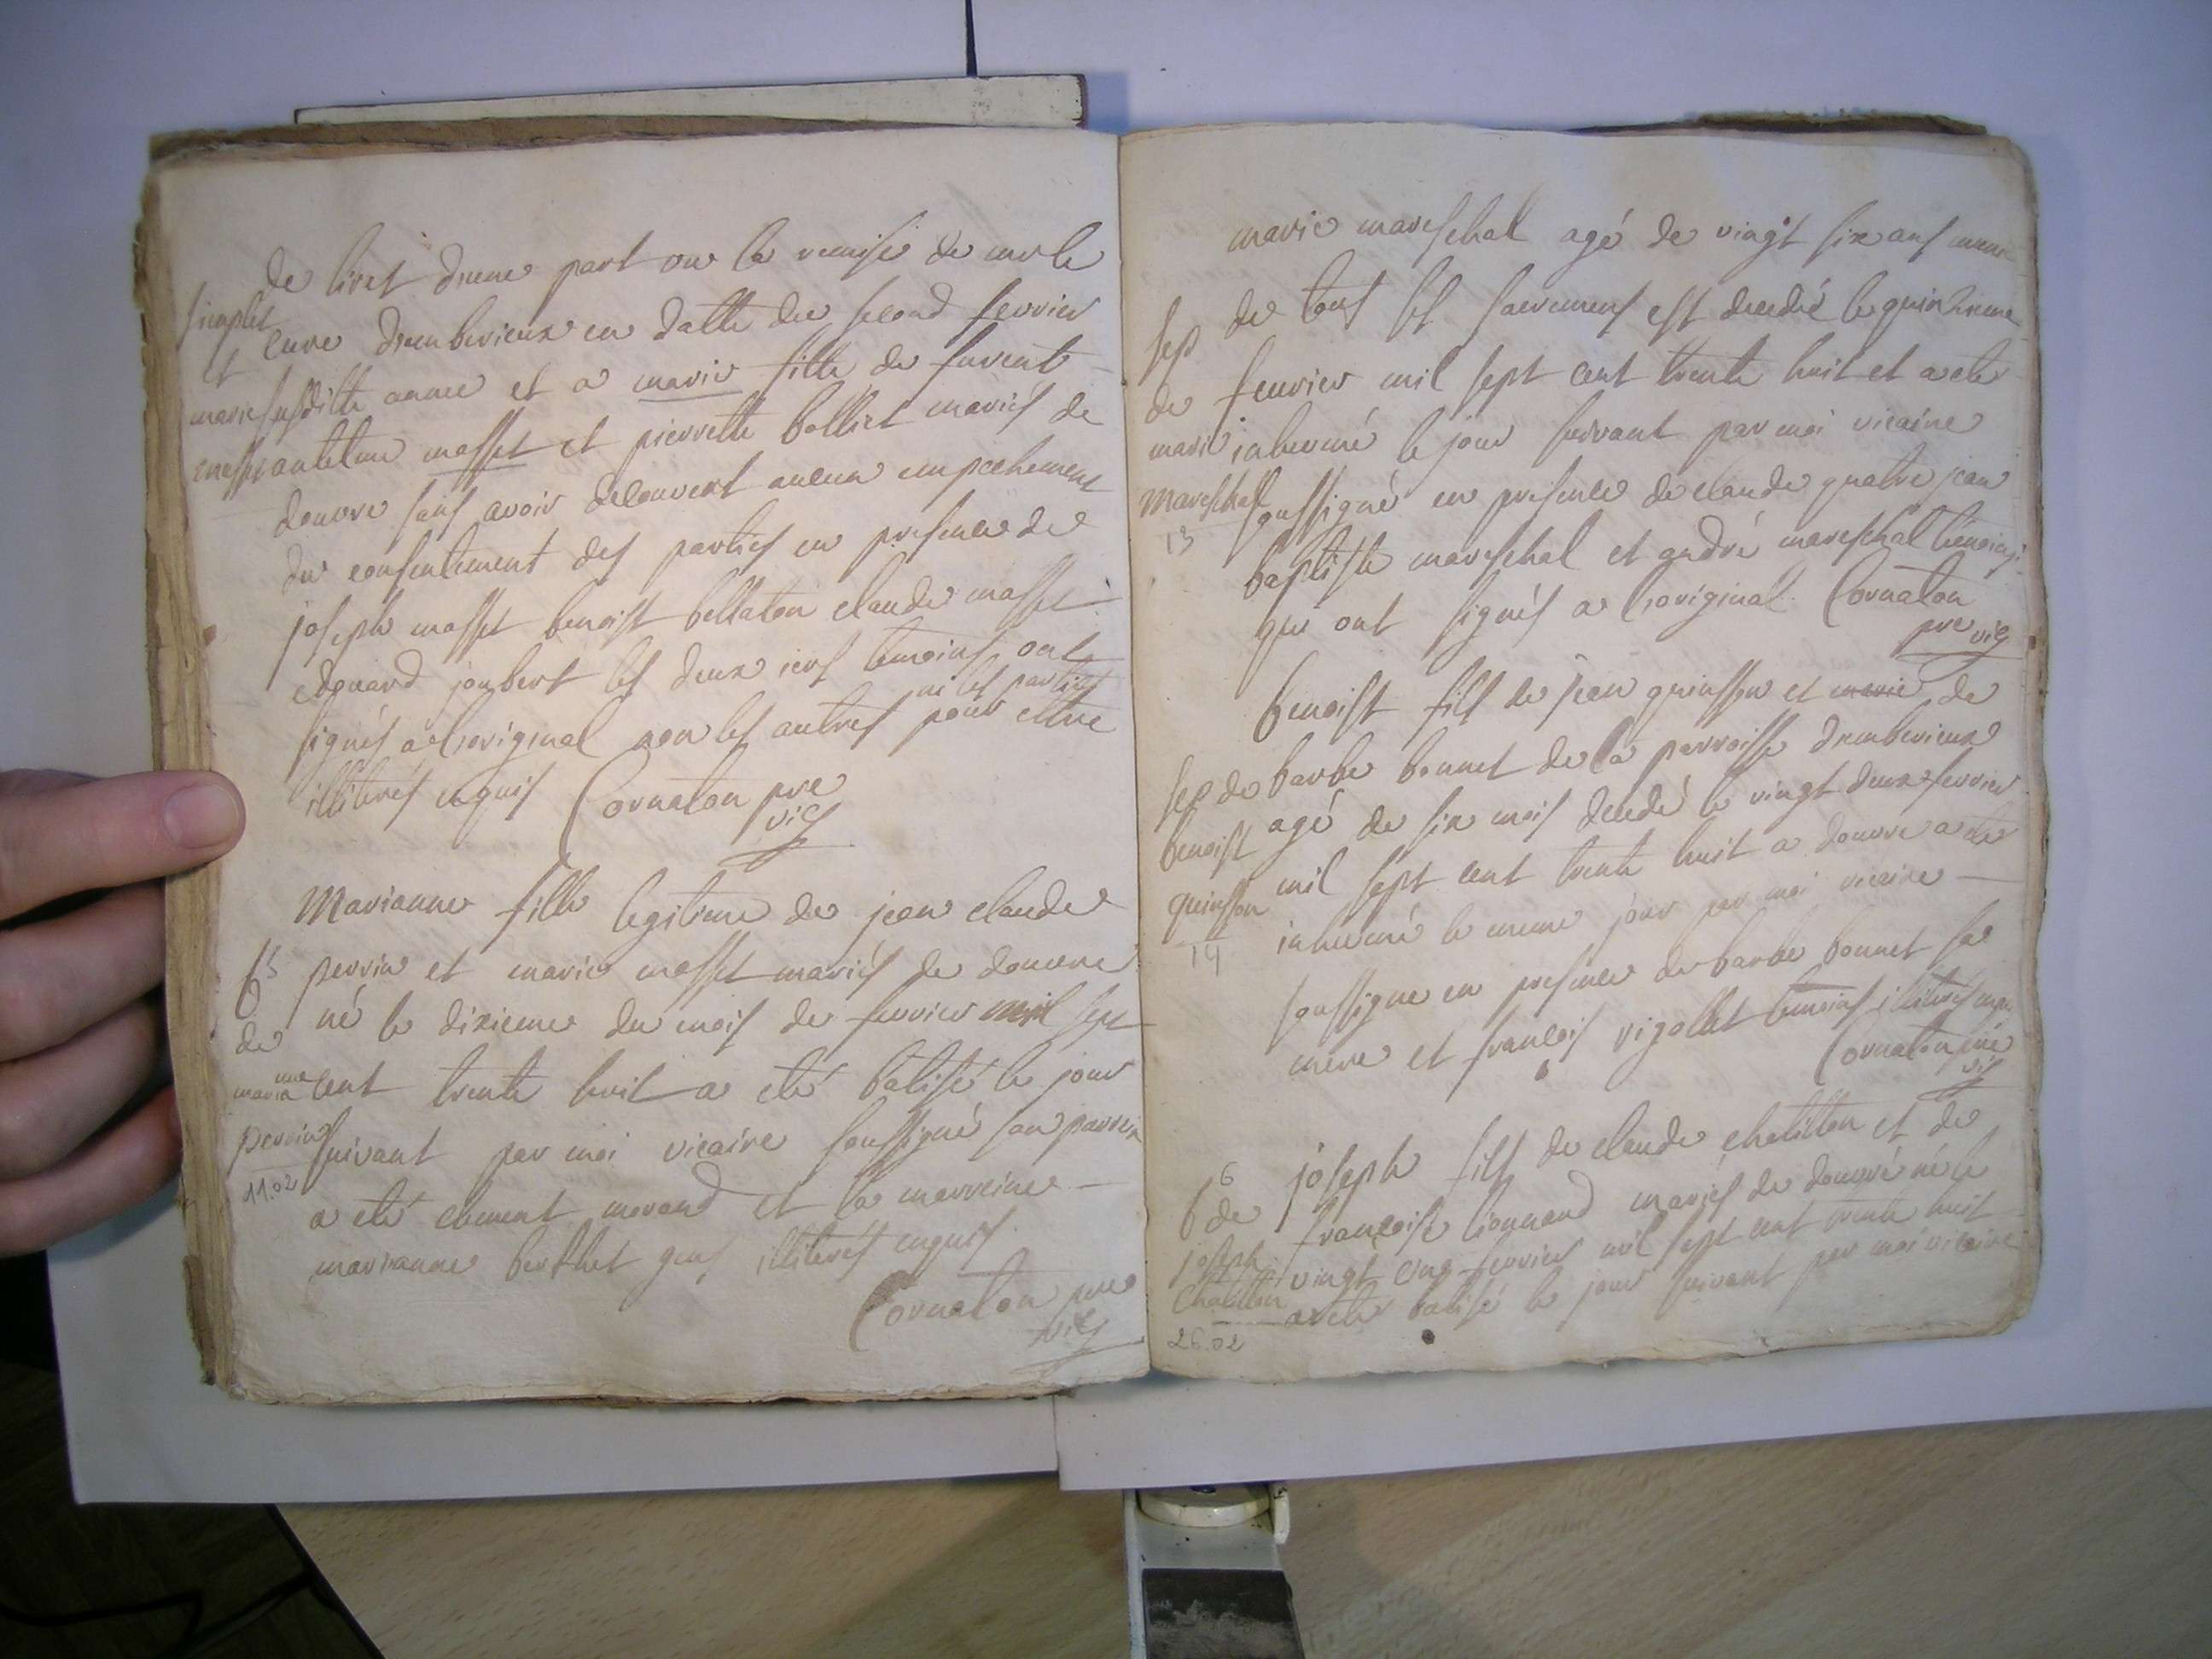 de liret dune part ou la remise de mr le
simplet
et
marie
masset
cure dambericux en datte du second fevrier
susditte annee et a marie fille de furent
anteleme masset et pierrette bolliet mariés de
douvre sans avoir decouvert aucun empechement
du consentement des parties en presence de
joseph masset benoist bellaton claude masset
edouard joubert les deux iers temoins ont
signés a loriginal non les autres ni les parties pour estre
illiterés enquis Cornaton pre
vic
Marianne fille legitime de jean claude
b 5
de
marianne
perrin
11.02
perrin et marie masset mariés de douvre
né le dixieme du mois de fevrier mil sept
cent trente huit a eté batisé le jour
suivant par moi vicaire soussigné son parrein
a eté clement morand et la marreine
marianne berthet gens illiterés enquis
Cornaton pre
vic
marie mareschal agé de vingt six ans muni
sep
de
marie
Mareschal
13
de tous les sacremens est decedé le quinzieme
fevrier mil sept cent trente huit et a eté
inhumé le jour suivant par moi vicaire
soussigné en presence de claude quatre jean
baptiste mareschal et andré mareschal témoins
qui ont signés a loriginal Cornaton
pre vic
benoist fils de jean quinsson et marie de
sep de
benoist
quinsson
14
barbe bonnet de la parroisse dambericux
agé de six mois decedé le vingt deux fevrier
mil sept cent trente huit a douvre a eté
inhumé le meme jour par moi vicaire
soussigne en presence de barbe bonnet sa
mere et francois vigollet temoins illiterés enquis
Cornaton pre
vic
joseph fils de claude chatillon et de
b 6
de
joseph
Chatillon
26.02
francoise lionnand mariés de douvre né le
vingt cinq fevrier mil sept cent trente huit
a eté batisé le jour suivant par moi vicaire